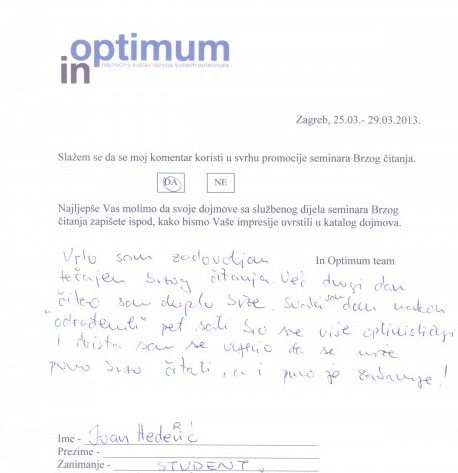 in optimum
najmoćniji sustav razvoja ljudskih potencijala
Zagreb, 25.03.- 29.03.2013.
Slažem se da se moj komentar koristi u svrhu promocije seminara Brzog čitanja.
DA NE
Najljepše Vas molimo da svoje dojmove sa službenog dijela seminara Brzog
čitanja zapišete ispod, kako bismo Vaše impresije uvrstili u katalog dojmova.
In Optimum team
Vrlo sam zadovoljan
tečajem brzog čitanja. Već drugi dan
čitao sam duplo brže. Svaki sam dan nakon
"odrađenih" pet sati bio sve više optimističniji
i doista sam se uvjerio da se može
puno brzo čitati, a i puno je zabavnije!
Ime - Ivan
Prezime -
Zanimanje - STUDENT